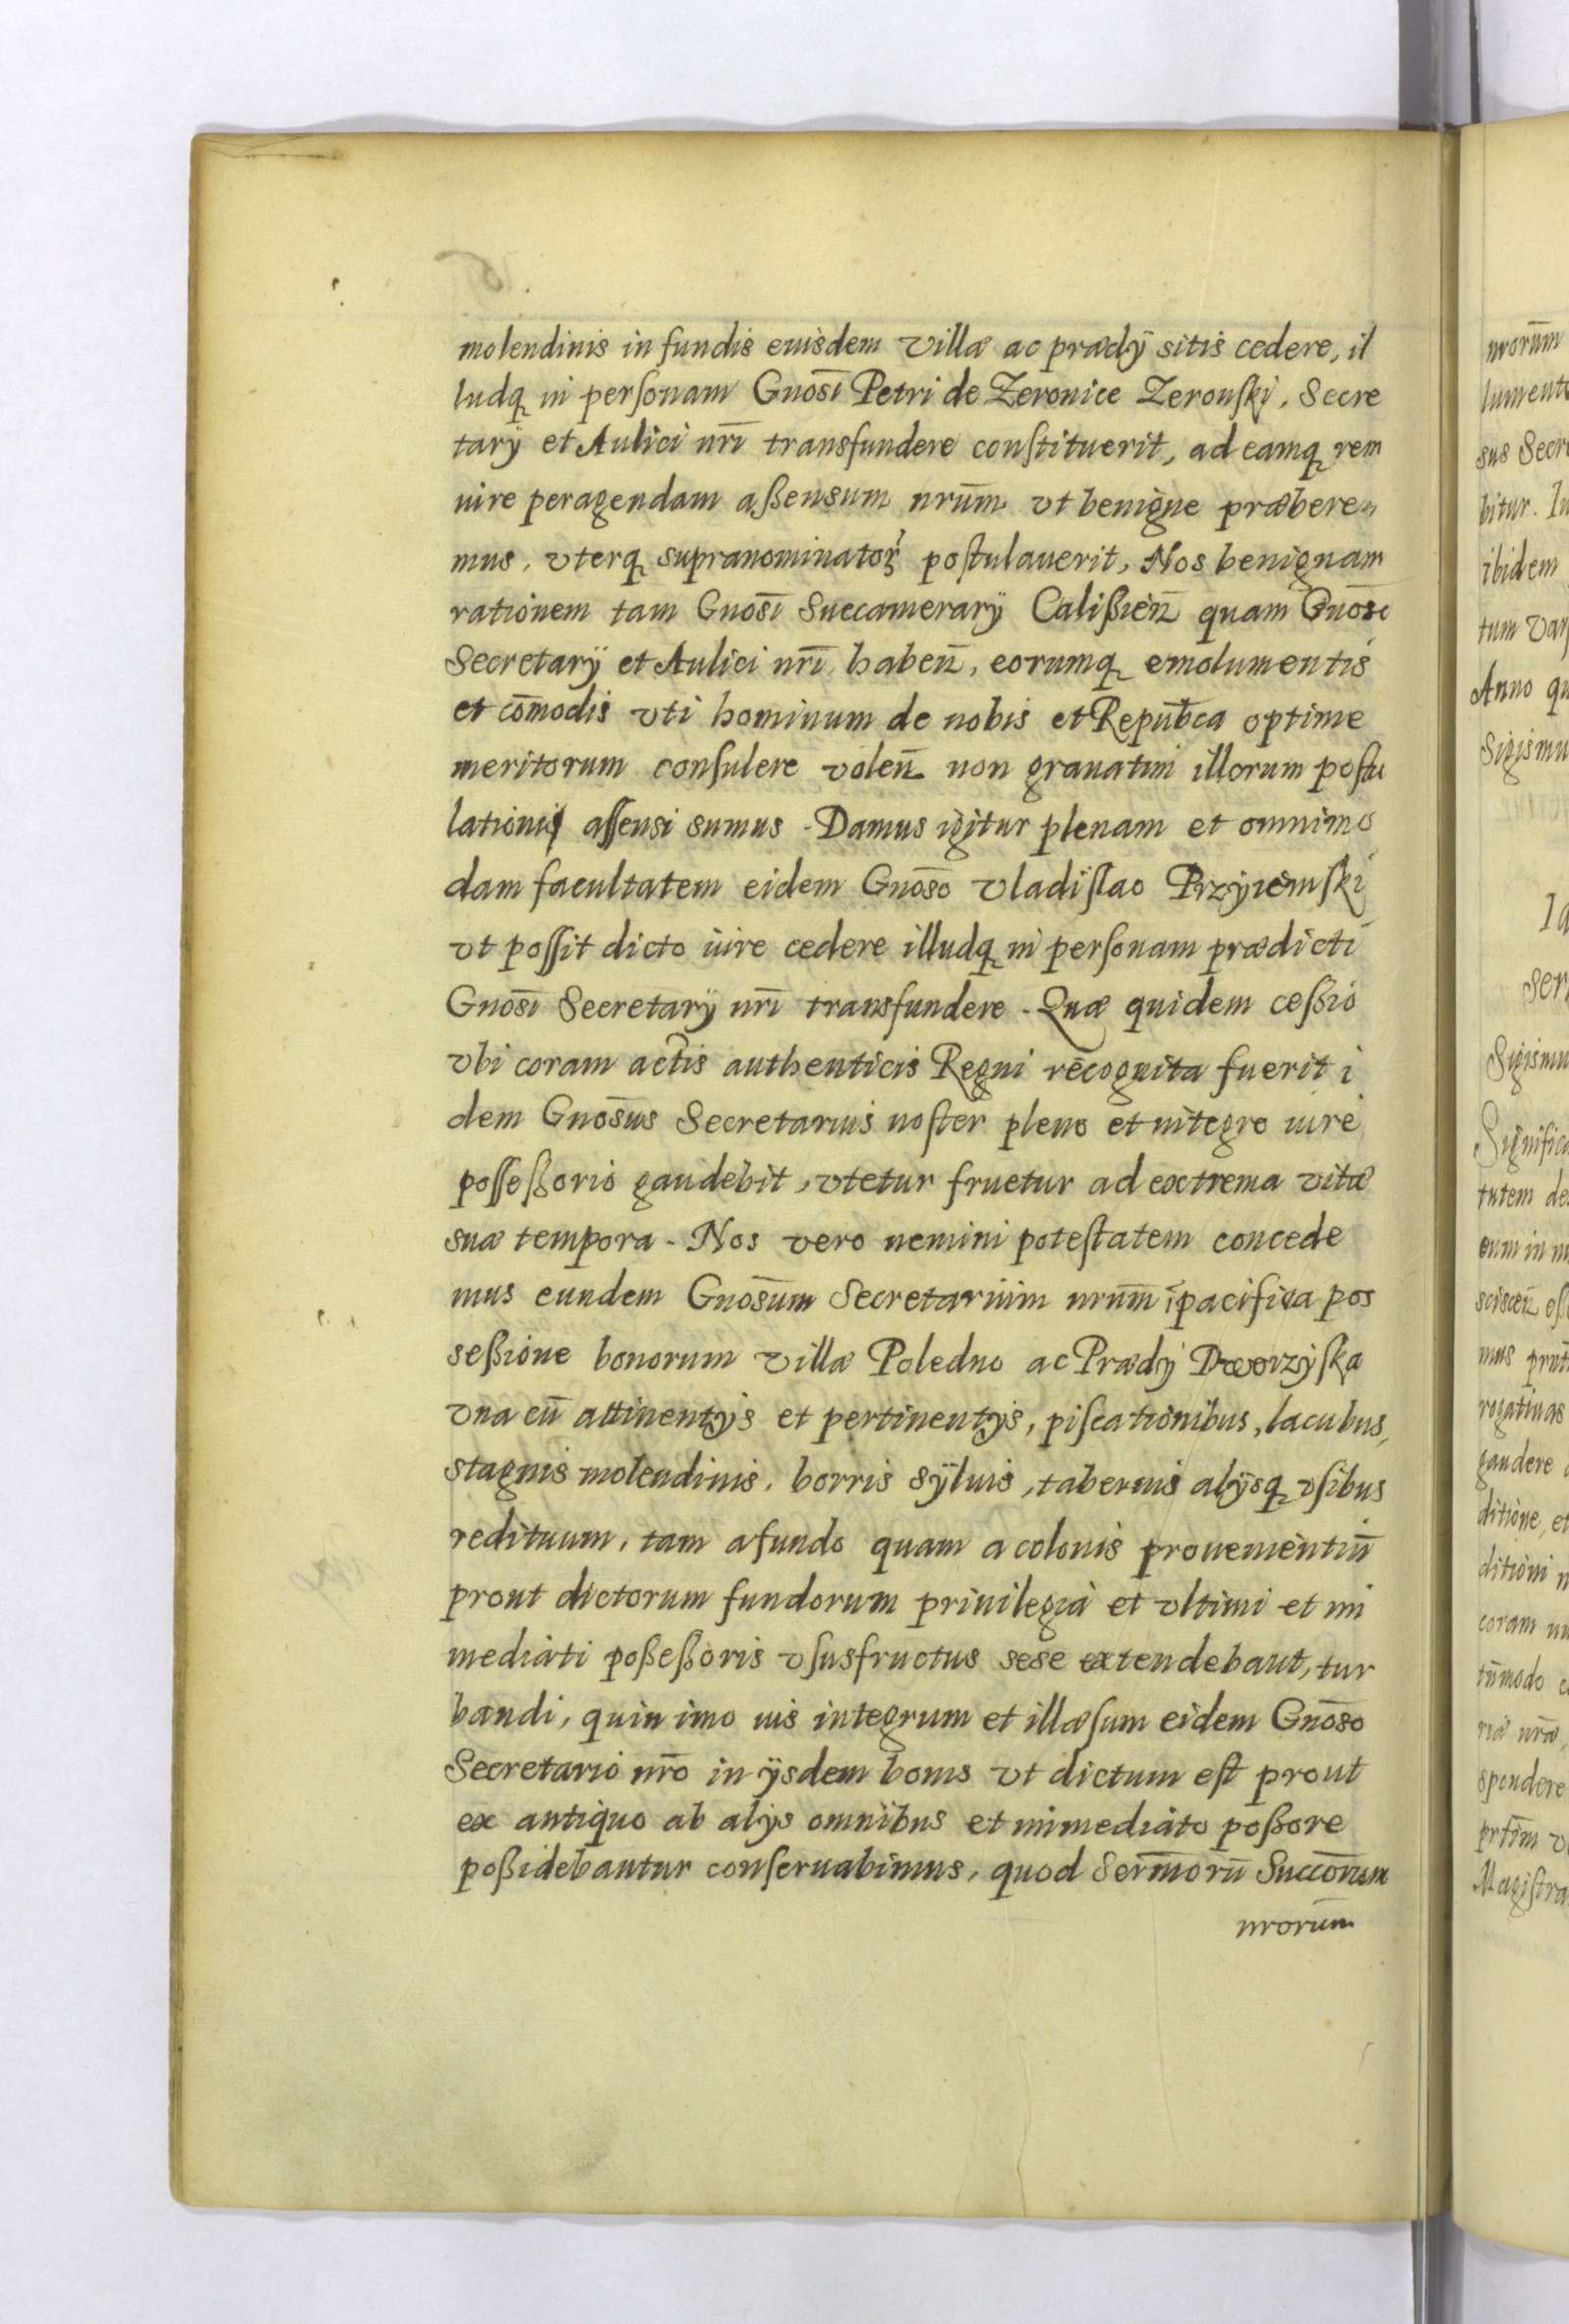 molendinis in fundis eiusdem villæ ac prædÿ sitis cedere, il
ludq̃ in perſonam Gnosi̅ Petri de Zeronice Zerouſkj, Secre
tarÿ et Aulici nri̅ transfundere conſtituerit, ad eamq̃ rem
iure peragendam aßensum nrum̅ vt benigne præbere
mus, vterq̃ supranominator̃ poſtulauerit, Nos benignam
rationem tam Gnosi̅ Succamerarÿ Calißien̅ quam Gnosi̅
Secretarÿ et Aulici nri̅ haben̅, eorumq̃ emolumentis
et com̅odis vti hominum de nobis et Repub̅ca optime
meritorum conſulere volen̅ non grauatim illorum poſtu
lationi aſſensi sumus. Damus igitur plenam et omnimo
dam facultatem eidem Gnoso̅ Vladiſlao Przyiemſki
vt poſſit dicto iure cedere illudq̃ in perſonam prædicti
Gnosi̅ Secretarÿ nri̅ transfundere. Quæ quidem ceßio
vbi coram actis authenticis Regni recognita fuerit i
dem Gnosus̅ Secretarius noſter pleno et integro iure
poſſeßorio gaudebit, vtetur fruetur ad extrema vitæ
suæ tempora. Nos vero nemini poteſtatem concede
mus eundem Gnosum̅ Secretarium nrum̅ i̅ pacifica pos
seßione bonorum villæ Poledno ac Prædÿ Dworzyſka
vna cu̅ attinentÿs et pertinentÿs, piſcationibus, lacubus,
stagnis molendinis, borris sÿluis, tabernis alÿsq̃ vſibus
redituum, tam a fundo quam a colonis prouenientiu̅
prout dictorum fundorum priuilegia et vltimi et im
mediati poßeßoris vſusfructus sese extendebant, tur
bandi, quin imo ius integrum et illæſum eidem Gnoso̅
Secretario nro̅ in ÿsdem bonis vt dictum eſt prout
ex antiquo ab alÿs omnibus et immediato poßore
poßidebantur conſeruabimus, quod Serm̅oru̅ Succor̅um
nrorum̅